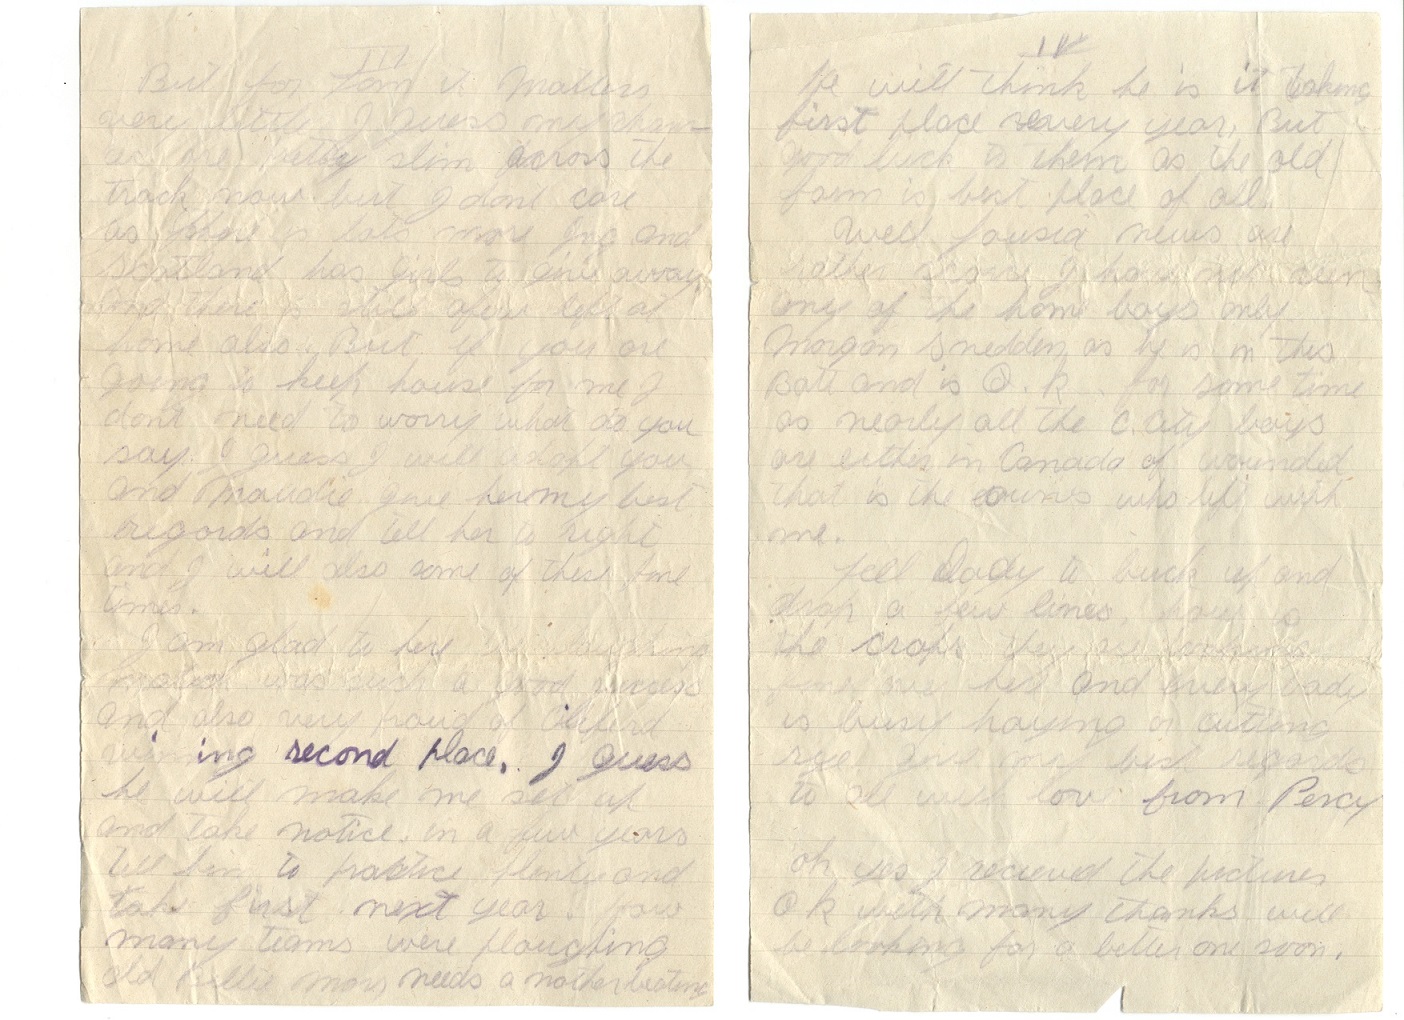 III
But for Tom it matters
very little I guess my chan-
as are petty slim across the
track now but I dont care
as there is lots more Ing and
Scottland has girls to give away
ong there is still afew left at
home also. But if you are
going to keep house for me I
dont need to worry what do you
say. I guess I will adopt you
and Maudie give her my best
regards and tell her to right
and I will also some of these fine
times.
I am glad to here the
was such a good success
and also very proud of Cliferd
wining second place. I guess
he will make me set up
and take notice in a few years
tell him to practice plenty and
take first next year. how
many teams were ploughing
old Billie mors needs a nother beating
IV
He will think he is it taking
first place every year. But
good luck to them as the old
farm is best place of all.
Well Lousia news are
rather scarce I have not seen
any of the home boys only
Morgan Snedden as he is in this
Batt and is O.K. for some time
as nearly all the C. City boys
are either in Canada of wounded
that is the ownes who left with
me.
Tell Dady to buck up and
drop a few lines, how is
the crops they are looking
fine over here and every body
is busy haying or cutting
rye. Give my best regards
to all with love from Percy
oh yes I recieved the pictures
O k with many thanks will
be looking for a better one soon.